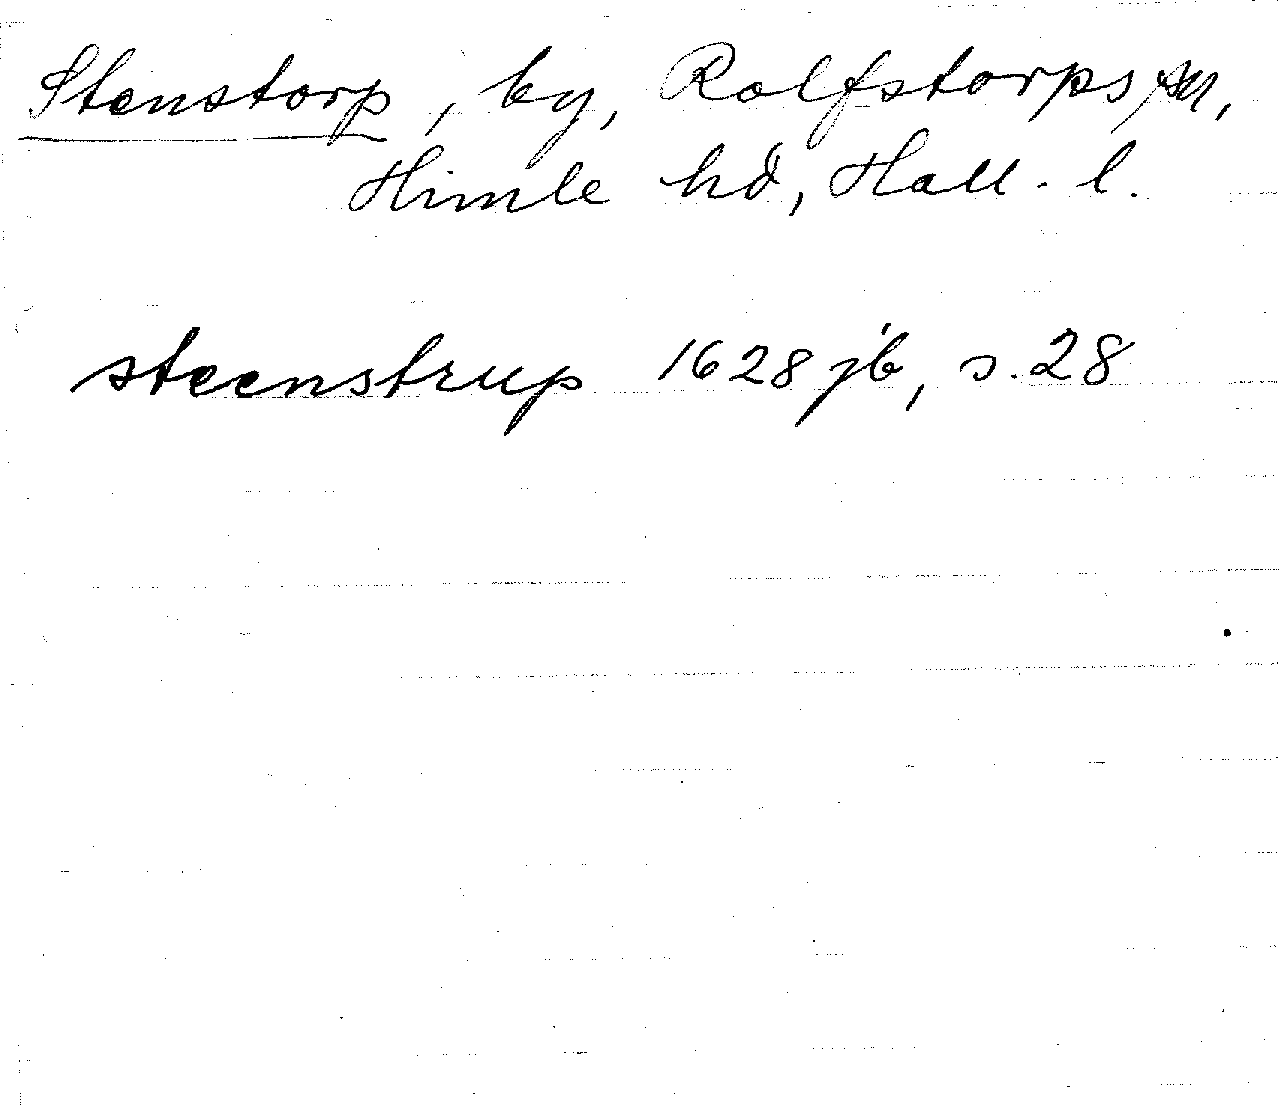 Stenstorp, by, Rolfstorps sn,
Himle hd, Hall. l.
steenstrup 1628 jb, s. 28